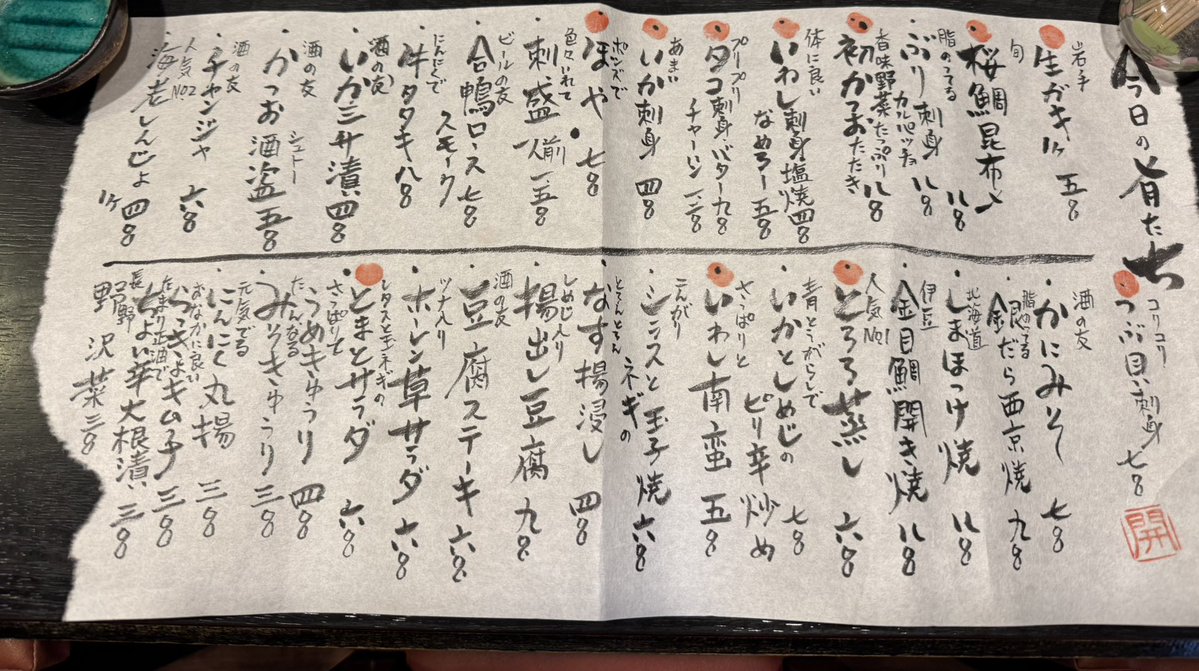 今日の旨たち
岩手
生ガキ 1ヶ 五〇〇
旬
桜鯛昆布〆 八〇〇
脂のってる
ぶり刺身 八〇〇
カルパッチョ
香味野菜たっぷり
初かつおたたき 八〇〇
体に良い
いわし刺身塩焼 四〇〇
なめろー 五〇〇
プリプリ
タコ刺身バター 九〇〇
チャーハン
あまい
いか刺身 四〇〇
ポンズで
ほや 七〇〇
色々いれて
刺盛一人前
ビールの友
合鴨ロース 七〇〇
スモーク
にんにくで
牛タタキ 八〇〇
酒の友
いか三升漬 四〇〇
酒の友
かつお酒盗 五〇〇
シュトー
酒の友
チャンジャ 六〇〇
人気No2
海老しんじょ 1ヶ 四〇〇
コリコリ
つぶ貝刺身 七〇〇
酒の友
かにみそ 七〇〇
脂のってる
銀だら西京焼 九〇〇
北海道
しまほっけ焼 八〇〇
伊豆
金目鯛開き焼 八〇〇
人気No1
とろろ蒸し 六〇〇
青とうがらしで
いかとしめじの
ピリ辛炒め 七〇〇
さっぱりと
いわし南蛮 五〇〇
こんがり
シラスと玉子焼 六〇〇
ネギの
とろんとろん
なす揚浸し 四〇〇
しめじ入り
揚出し豆腐 九〇〇
酒の友
豆腐ステーキ 六〇〇
ツナ入り
ホーレン草サラダ 六〇〇
レタスと玉ネギの
とまとサラダ 六〇〇
さっぱりと
うめきゅうり 四〇〇
たんなる
みそきゅうり 三〇〇
元気でる
にんにく丸揚 三〇〇
おなかに良い
らっきょキムチ 三〇〇
たまり正油で
ちょい辛大根漬 三〇〇
長野
野沢菜 三〇〇
開